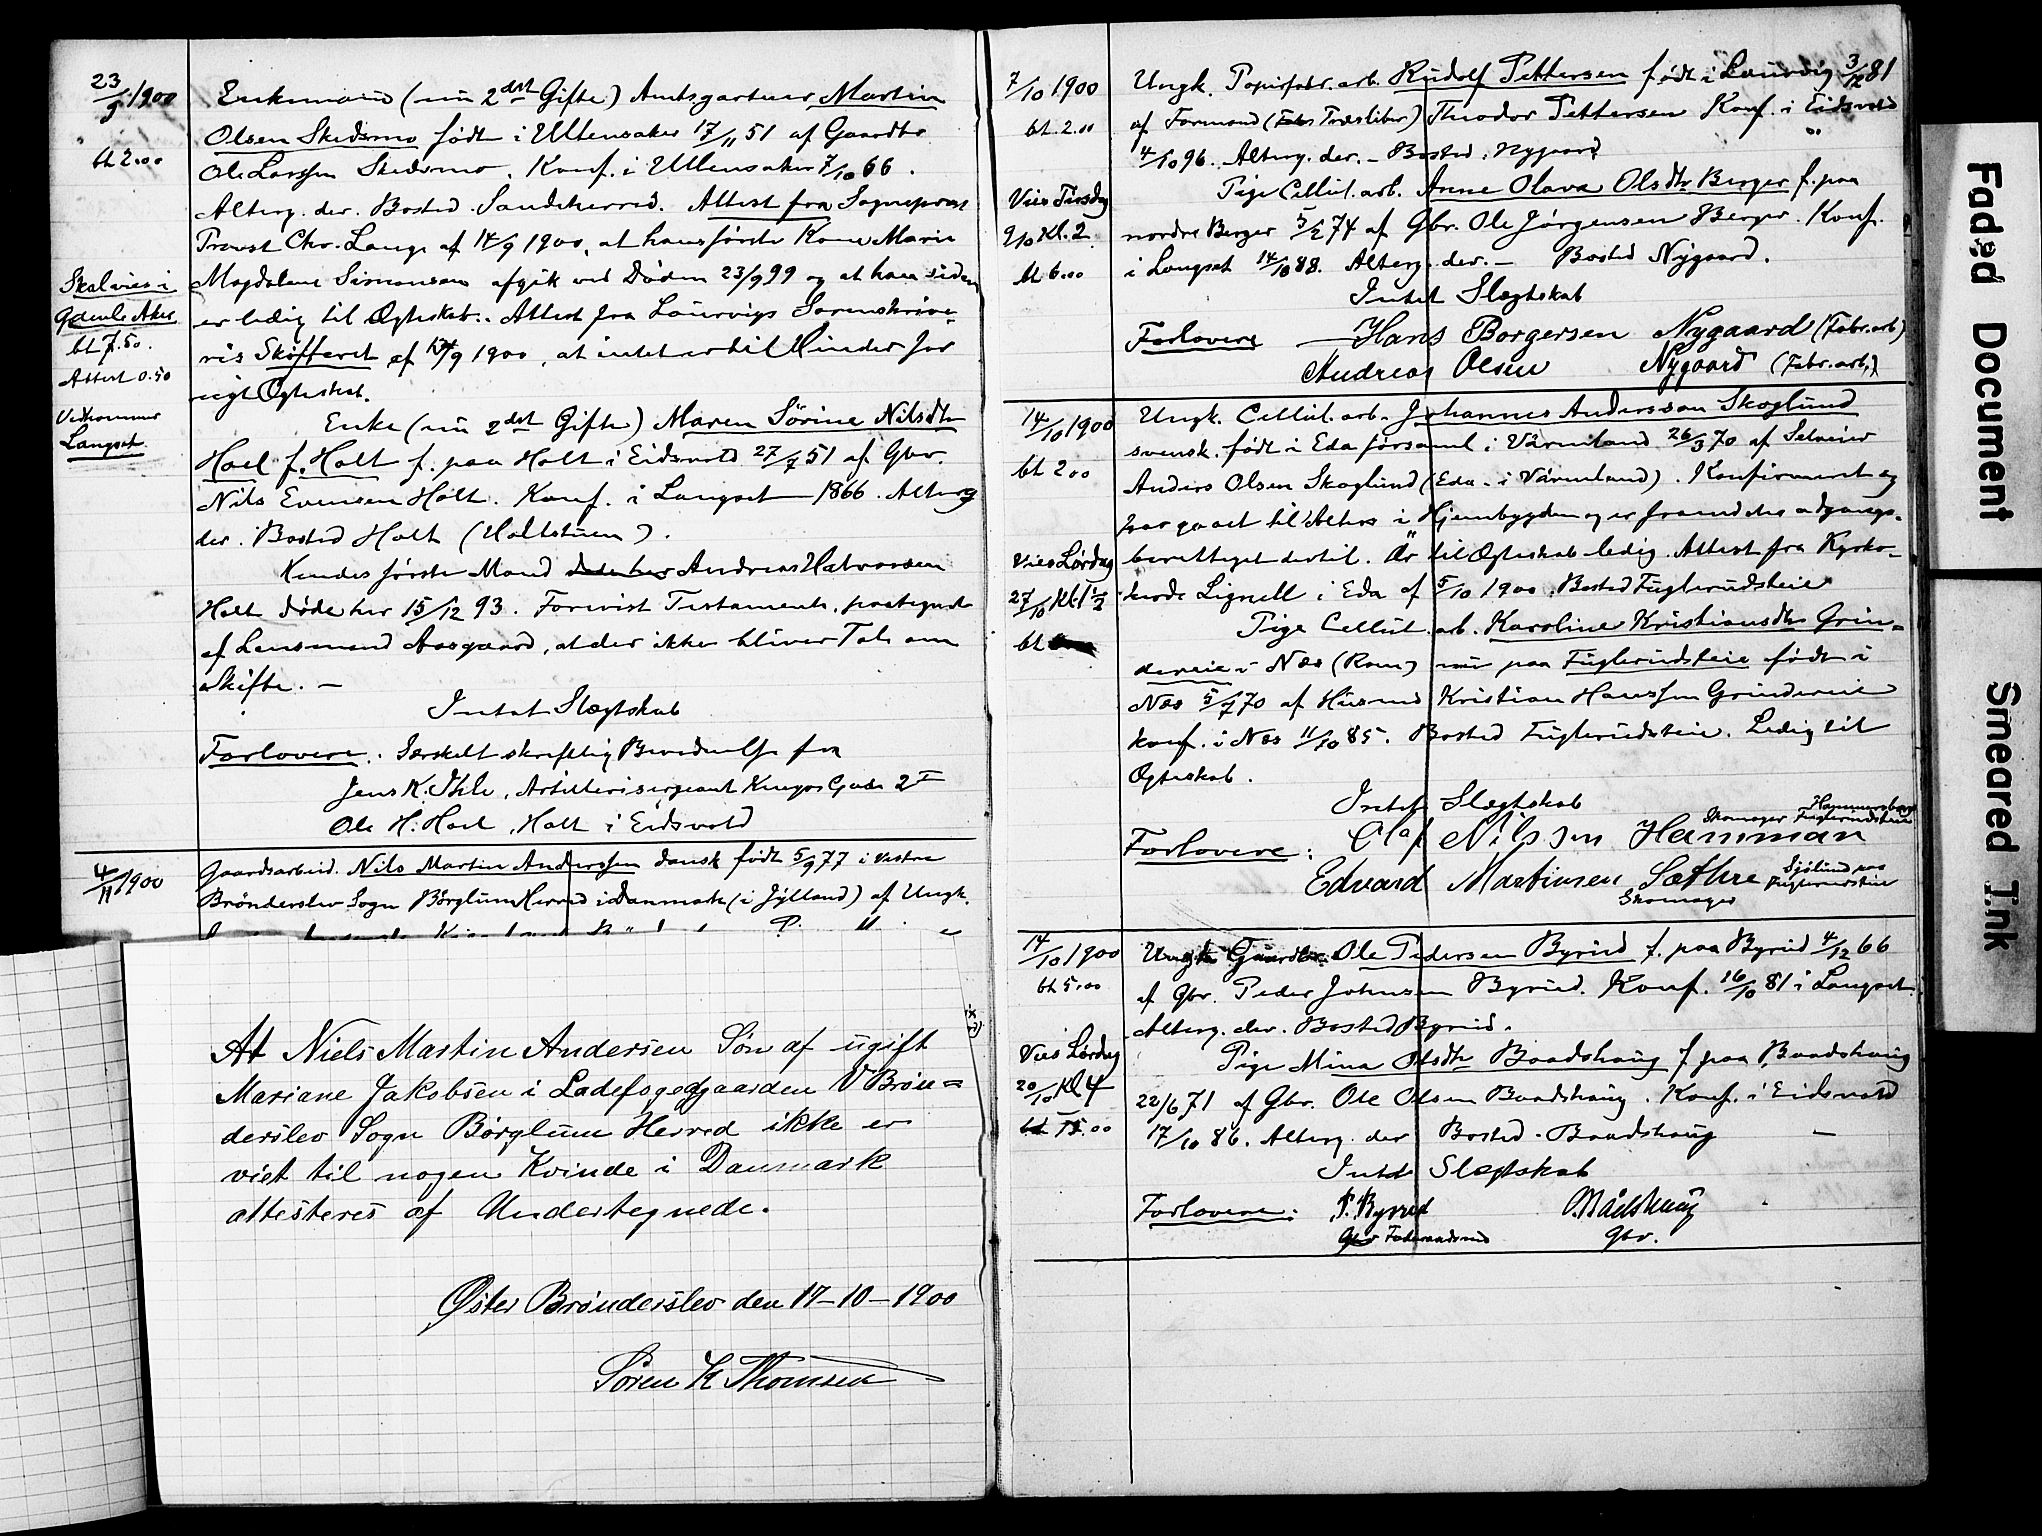 23/9 1900
bt 2.00
Skal vies i
Gamle Aker
bt 7.50.
Attest 0.50
Vedkommer
Langset
Enkemand (nu 2det Gifte) Amtsgartner Martin
Olsen Skedsmo født i Ullensaker 17/11 51 af Gaardbr
Ole Larssen Skedsmo. Konf. i Ullensaker 7/10 66.
Alterg. der. Bosted Sandeherred. Attest fra Sogneprest
Provst Chr. Lange af 14/9 1900, at hans første Kone Marie
Magdalene Simonsen afgik ved Døden 23/9 99 og at han siden
er ledig til Ægteskab. Attest fra Laurvigs Sorenskrive-
ris Skifteret af 1900, at intet er til Hinder for
nyt Ægteskab.
Enke (nu 2det Gifte) Maren Sørine Nilsdtr
Hoel f. Holt f. paa Holt i Eidsvold 27/7 51 af Gbr.
Nils Evensen Holt. Konf. i Langset 1866. Alterg
der. Bosted Holt (Holtstuen).
Hendes første Mand Andreas Halvorsen
Holt døde her 15/12 93. Forevist Testamente, paategnet
af Lensmand Aasgaard, at der ikke bliver Tale om
Skifte. —
Intet Slægtskab
Forlovere. Særskilt skriftlig Bevidnelse fra
Jens K. Ihle, Artillerisergeant Kingos Gade 2 I
Ole H. Hoel, Holt i Eidsvold
4/11 1900
Gaardsarbeid. Nils Martin Anderssen dansk født 5/9 77 i Vestre
Brønderslev Sogn Børglum Herred i Danmark (i Jylland) af Ungk.
At Niels Martin Andersen Søn af ugift
Mariane Jakobsen i Ladefogedgaarden V Brøn=
derslev Sogn Børglum Herred ikke er
viet til nogen Kvinde i Danmark
attesteres af Undertegnede.
Øster Brønderslev den 17-10-1900
Søren K Thomsen
7/10 1900
bt 2.00
Vies Tirsdag
9/10 Kl. 2
bt 6.00
Ungk. Papirfabr.arb. Rudolf Pettersen født i Laurvig 3/12 81
af Formand (Træsliber) Theodor Pettersen Konf. i Eidsvold
4/10 96. Alterg. der. — Bosted. Nygaard
Pige Cellul. arb. Anne Olava Olsdtr Berger f. paa
nordre Berger 5/2 74 af Gbr. Ole Jørgensen Berger. Konf.
i Langset 14/10 88. Alterg. der. — Bosted Nygaard.
Intet Slægtskab
Forlovere — Hans Borgersen Nygaard (Fabr.arb)
Andreas Olsen Nygaard (Fabr.arb.)
14/10 1900
bt 2.00
Vies Lørdag
27/10 Kl 1½
bt
Ungk. Cellul. arb. Johannes Andersson Skoglund
svensk. født i Eda församl. i Värmland 26/3 70 af Selveier
Anders Olsen Skoglund (Eda i Värmland). Konfirmeret og
har gaaet til Alters i Hjembygden og er fremdeles adgangs-
berettiget dertil. Är til Ægteskab ledig. Attest fra Kyrko-
herde Lignell i Eda af 5/10 1900. Bosted Fuglerudsteie
Pige Cellul. arb. Karoline Kristiansdtr Grin=
dereie i Næs (Rom) nu paa Fuglerudsteie født i
Næs 5/7 70 af Husmd Kristian Hanssen Grindereie
konf. i Næs 11/10 85. Bosted Fuglerudsteie. Ledig til
Ægteskab.
Intet Slægtskab
Forlovere: Olaf Nilssen Hamman Skomager Fuglerudsteie
Edvard Martinsen Sæthre Skomager Fuglerudsteie
14/10 1900
bt 5.00
Vies Lørdag
20/10 Kl 4
bt 15.00
Ungk Gaardbr. Ole Pedersen Byrud f. paa Byrud 4/12 66
af Gbr. Peder Johnsen Byrud. Konf. 16/10 81 i Langset.
Alterg. der. Bosted Byrud.
Pige Mina Olsdtr Baadshaug f. paa Baadshaug
22/6 71 af Gbr. Ole Olsen Baadshaug. Konf. i Eidsvold
17/10 86. Alterg. der Bosted - Baadshaug —
Intet Slægtskab
Forlovere: P. Byrud O. Baadshaug
Gbr Føderaadsmd Gbr.
Faded Document
Smeared Ink